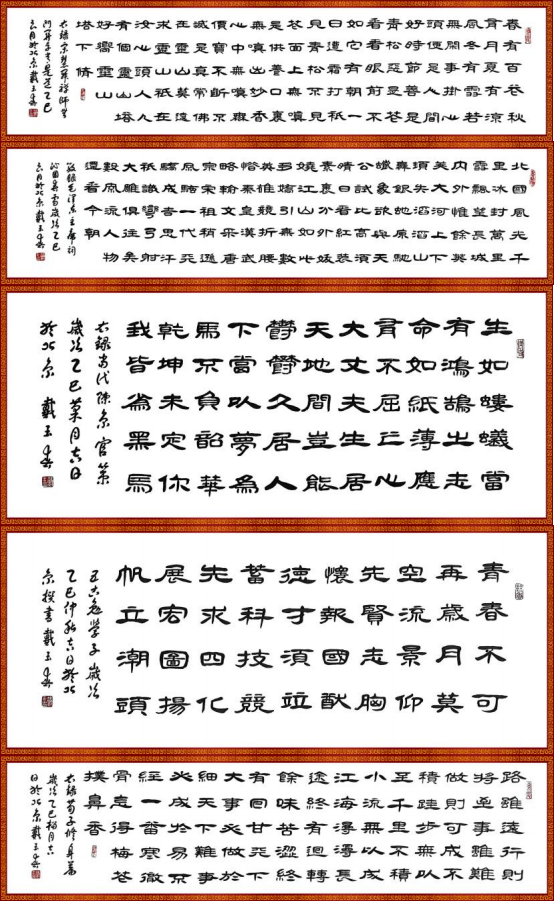 春有百花秋
有月夏有涼
風冬有雪若
無閒事掛心
頭便是人間
好時節善是
青松惡是花
看看眼前不
如它有朝一
日遭霜打祇
見青松不見
花面上無嗔
是供養口裏
無嗔出妙香
心中無嗔無
價寶不斷不
滅是真常佛
在靈山莫遠
求靈山祇在
汝心頭人人
有個靈山塔
好嚮靈山
塔下修
六月於北京戴玉
北國風光千
里冰封萬里
雪飄望長城
內外惟餘莽
莽大河上下
頓失滔滔山
舞銀蛇原馳
蠟象欲與天
公試比高須
晴日看紅裝
素裹分外妖
嬈江山如此
多嬌引無數
英雄競折腰
惜秦皇漢武
略輸文采唐
宗宋祖稍遜
風騷一代天
驕成吉思汗
祇識彎弓射
大雕俱往矣
數風流人物
還看今朝
敬録毛澤東主席詞
沁園春雪歲次乙巳
六月於北京戴玉
生如螻蟻當
有鴻鵠之志
命如紙薄應
有不屈之心
大丈夫生居
天地間豈能
鬱鬱久居人
下當以夢為
馬不負韶華
乾坤未定你
我皆為黑馬
右録當代陳京官策
歲次乙巳
於北京戴玉
青春不可
再歲月莫
空流景仰
先賢志胸
懷報國猷
德才須並
蓄科技競
先求四化
展宏圖揚
帆立潮頭
學子歲次
乙巳仲秋 日於北
京撰書戴玉
路雖遠行則
將至事雖難
做則可成不
積跬步無以
至千里不積
小流無以成
江海漫漫長
途終有迴轉
餘味苦澀終
有回甘天下
大事必做於
細天下難事
必成於易不
經一番寒徹
骨怎得梅花
撲鼻香
右録荀子修身篇
歲次乙巳
日於北京戴玉